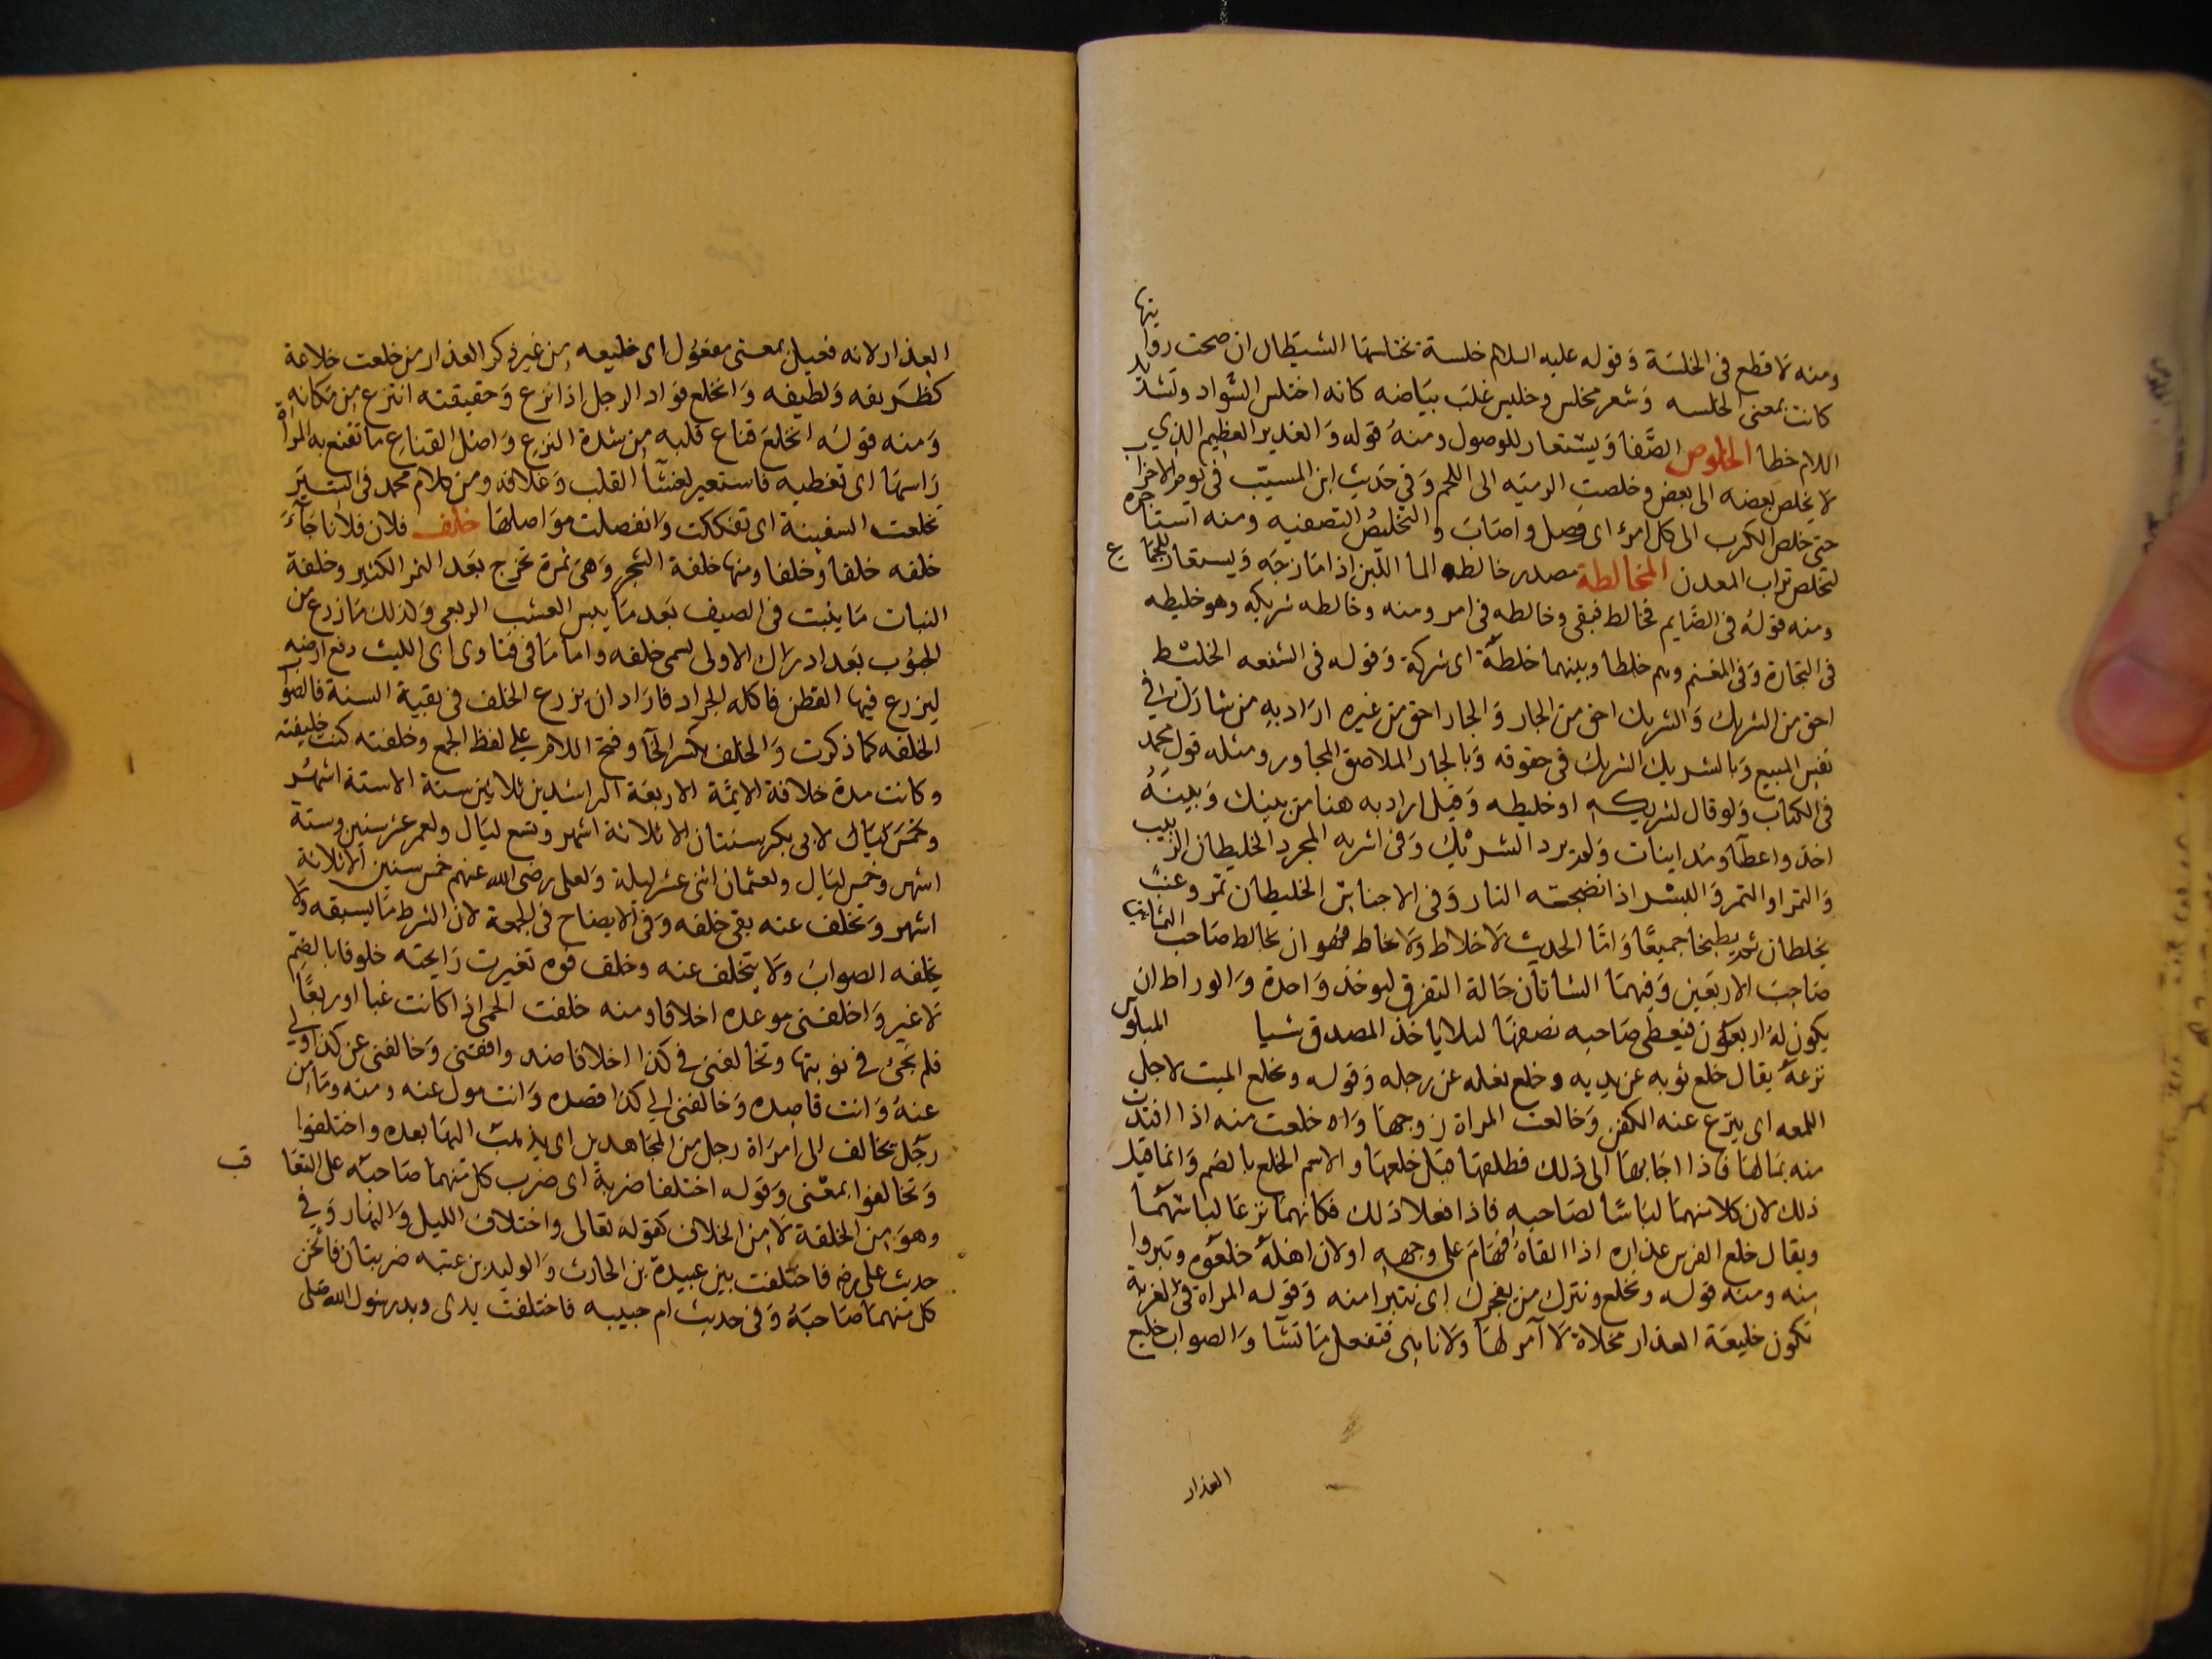 ومنه لا قطع فى الخلسة وقوله عليه السلام خلسة يختلسها الشيطان ان صحت روايتها
كانت بمعنى الخلسه وشعر مخلس وخليس غلب بياضه كانه اختلس السواد وتشديد
اللام خطا الخلوص الصفا ويستعار للوصول ومنه قوله والغدير العظيم الذي
لا يخلص بعضه الى بعض وخلصت الرميه الى اللحم وفى حديث ابن المسيب فى لوط الاخراب
حتى خلص الكرب الى كل امرئ اى وصل واصاب والتخليص التصفيه ومنه استاجره
لتخلص تراب المعدن المخالطة مصدر خالطه الما اللبن اذا مازجه ويستعار للجماع
ومنه قوله فى الصايم فخالط فبقى وخالطه فى امر ومنه وخالطه شريكه وهو خليطه
فى التجارة وفى المغنم وهم خلطا وبينهما خلطة اى شركة وقوله فى الشفعه الخليط
احق من الشريك والشريك احق من الجار والجار احق من غيره اراد به من شارك فى
نفس المبيع وبالشريك الشريك فى حقوقه وبالجار الملاصق المجاور ومثله قول محمد
فى الكتاب ولو قال لشريكه او خليطه وقيل اراد به هنا من بينك وبينه
اخذ واعطا ومداينات ولم يرد الشريك وفى اشربه المجرد الخليطان الزبيب
والتمر او التمر والبسر اذا انضجته النار وفى الاجناس الخليطان تمر وعنب
يخلطان ثم يطبخا جميعا واما الحديث لا خلاط ولا وراط فهو ان يخالط صاحب الثمانين
صاحب الاربعين وفيهما الشاتان حالة التفرق ليوخذ واحدة والوراط ان
يكون له اربعون فيعطى صاحبه نصفها لئلا ياخذ المصدق شيا الملبوس
نزعه يقال خلع ثوبه عن بدنه وخلع نعله عن رجله وقوله ويخلع الميت لاجل
اللمعه اى ينزع عنه الكفن وخالعت المراة زوجها واختلعت منه اذا افتدت
منه بمالها فاذا اجابها الى ذلك فطلقها قيل خلعها والاسم الخلع بالضم وانما قيل
ذلك لان كلا منهما لباسا لصاحبه فاذا فعلا ذلك فكانهما نزعا لباسهما
ويقال خلع الفرس عذاره اذا القاه فهام على وجهه او لان اهله خلعوه وتبروا
منه ومنه قوله ونخلع ونترك من يفجرك اى نتبرا منه وقوله المراة فى الغربة
تكون خليعة العذار مخلاة لا آمر لها ولا ناهى فتفعل ما تشا والصواب خليع
العذار
العذار لانه فعيل بمعنى مفعول اى خليعه من غير ذكر العذار من خلعت خلاعة
كظريفه ولطيفه وانخلع فواد الرجل اذا نزع وحقيقته انتزع من مكانه
ومنه قوله انخلع قناع قلبه من شدة النزع واصل القناع ما تقنع به المراة
راسها اى تغطيه فاستعير لغشا القلب وغلافه ومن كلام محمد فى السير
تخلعت السفينة اى تفككت وانفصلت مواصلها خلف فلان فلانا جاء
خلفه خلفا وخلفا ومنها خلفة الشجر وهى ثمرة تخرج بعد الثمر الكثير وخلفة
النبات ما ينبت فى الصيف بعد ما يبس العشب الربعى وكذلك ما زرع من
الحبوب بعد ادراك الاولى يسمى خلفه واما ما فى فتاوى ابى الليث دفع ارضه
ليزرع فيها القطن فاكله الجراد فاراد ان يزرع الخلف فى بقية السنة فالصواب
الخلفه كما ذكرت والخلف بكسر الخا وفتح اللام على لفظ الجمع وخلفته كنت خليفته
وكانت مدة خلافة الايمة الاربعة الراشدين ثلاثين سنة الا ستة اشهر
وخمس ليال لابى بكر سنتان الا ثلاثة اشهر وتسع ليال ولعمر عشر سنين وستة
اشهر وخمس ليال ولعثمان اثنى عشر ليلة ولعلى رضى الله عنهم خمس سنين الا ثلاثة
اشهر وتخلف عنه بقى خلفه وفى الايضاح فى الجمعة لان الشرط ما يسبقه ولا
يخلفه الصواب ولا يتخلف عنه وخلف فوه تغيرت رايحته خلوفا بالضم
لا غير واخلفنى موعده اخلافا ومنه خلفت الحمى اذا كانت غبا او ربعا
فلم تجئ فى نوبتها وتخالفنى فى كذا اخلافا ضد وافقنى وخالفنى عن كذا ولى
عنه وانت قاصده وخالفنى الى كذا قصده وانت مول عنه ومنه وما من
رجل يخالف الى امراة رجل من المجاهدين اى يذهب اليها بعده واختلفوا
وتخالفوا بمعنى وقوله اختلفا ضربة اى ضرب كل منهما صاحبه على التعاقب
وهو من الخلفة لا من الخلاف كقوله تعالى واختلاف الليل والنهار وفى
حديث على رضه فاختلفت بين عبيدة بن الحارث والوليد بن عتبه ضربتان فاثخن
كل منهما صاحبه وفى حديث ام حبيبه فاختلفت يدى ويد رسول الله صلى